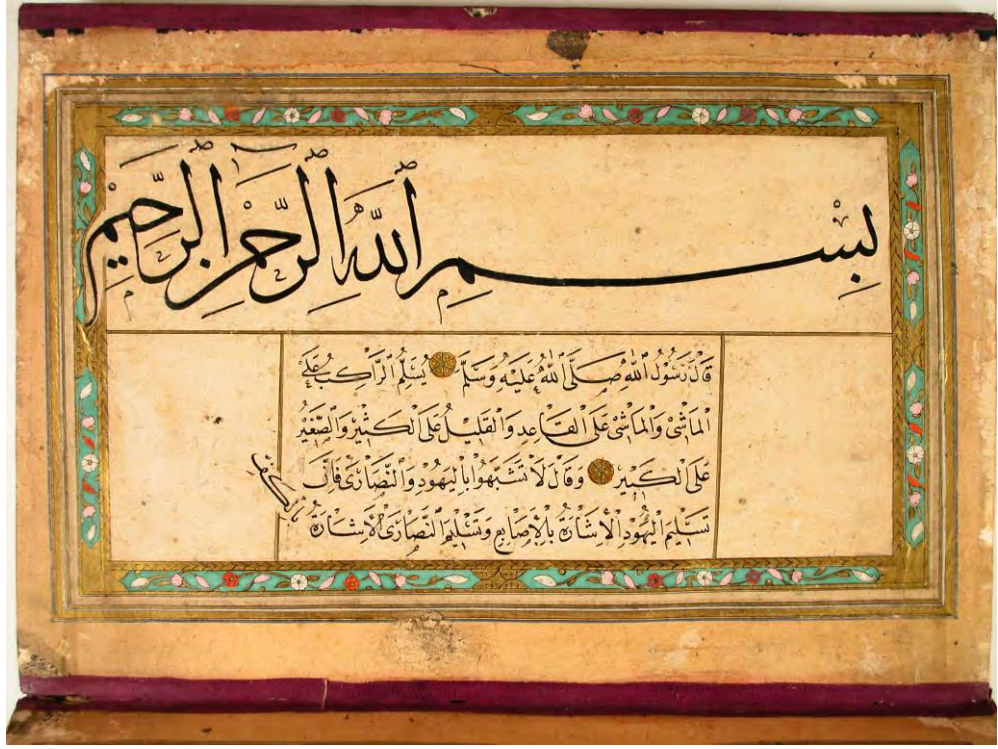 بِسْمِ اللّٰهِ الرَّحْمٰنِ الرَّحِيْمِ
قَالَ رَسُولُ اللّٰهِ صَلَّى اللّٰهُ عَلَيْهِ وَسَلَّمَ يُسَلِّمُ الرَّاكِبُ عَلَى
الْمَاشِى وَالْمَاشِى عَلَى الْقَاعِدِ وَالْقَلِيْلُ عَلَى الْكَثِيْرِ وَالصَّغِيْرُ
عَلَى الْكَبِيْرِ وَقَالَ لَا تَشَبَّهُوا بِالْيَهُودِ وَالنَّصَارَى فَاِنَّ
تَسْلِيْمَ الْيَهُودِ الْاِشَارَةُ بِالْاَصَابِعِ وَتَسْلِيْمَ النَّصَارَى الْاِشَارَةُ
بِالْكَفِّ